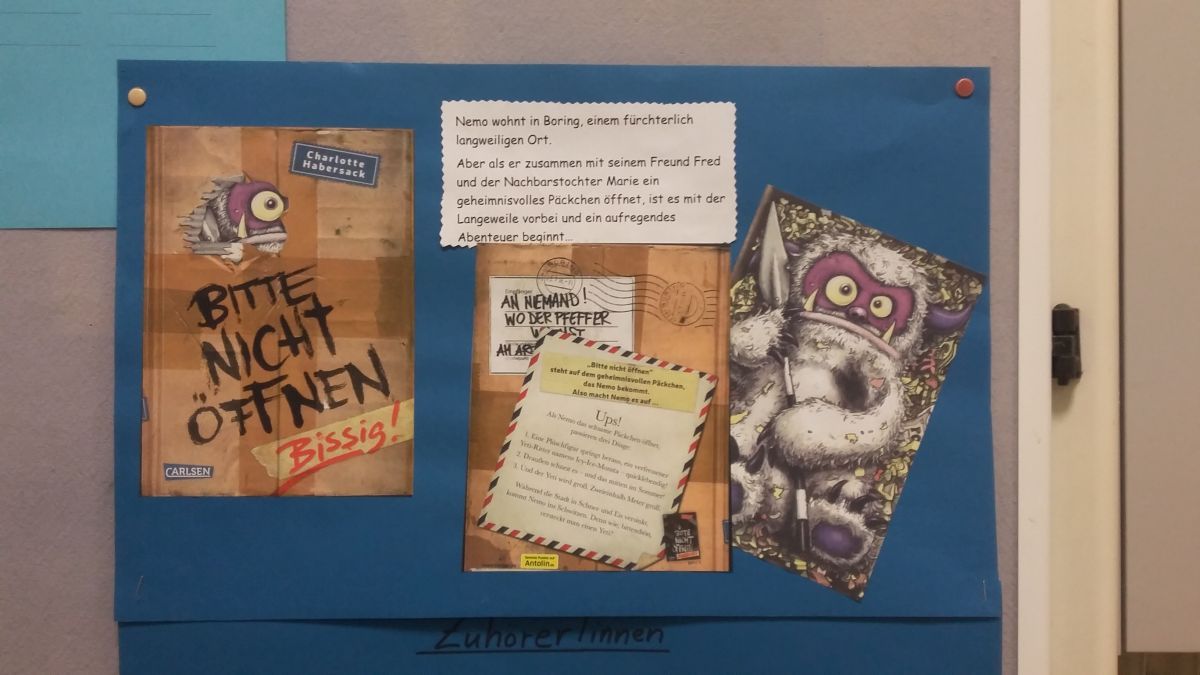 Charlotte
Habersack
BITTE
NICHT
ÖFFNEN
Bissig!
CARLSEN
Nemo wohnt in Boring, einem fürchterlich
langweiligen Ort.
Aber als er zusammen mit seinem Freund Fred
und der Nachbarstochter Marie ein
geheimnisvolles Päckchen öffnet, ist es mit der
Langeweile vorbei und ein aufregendes
Abenteuer beginnt...
Empfänger
AN NIEMAND!
WO DER PFEFFER
AM
„Bitte nicht öffnen"
steht auf dem geheimnisvollen Päckchen,
das Nemo bekommt.
Also macht Nemo es auf ...
Ups!
Als Nemo das seltsame Päckchen öffnet,
passieren drei Dinge:
1. Eine Plüschfigur springt heraus, ein verfrorener
Yeti-Ritter namens Icy-Ice-Monsta – quicklebendig!
2. Draußen schneit es – und das mitten im Sommer!
3. Und der Yeti wird groß. Zweieinhalb Meter groß.
Während die Stadt in Schnee und Eis versinkt,
kommt Nemo ins Schwitzen. Denn wie, bitteschön,
versteckt man einen Yeti?
BITTE
NICHT
ÖFFNEN
Antolin.de
Zuhörer/innen